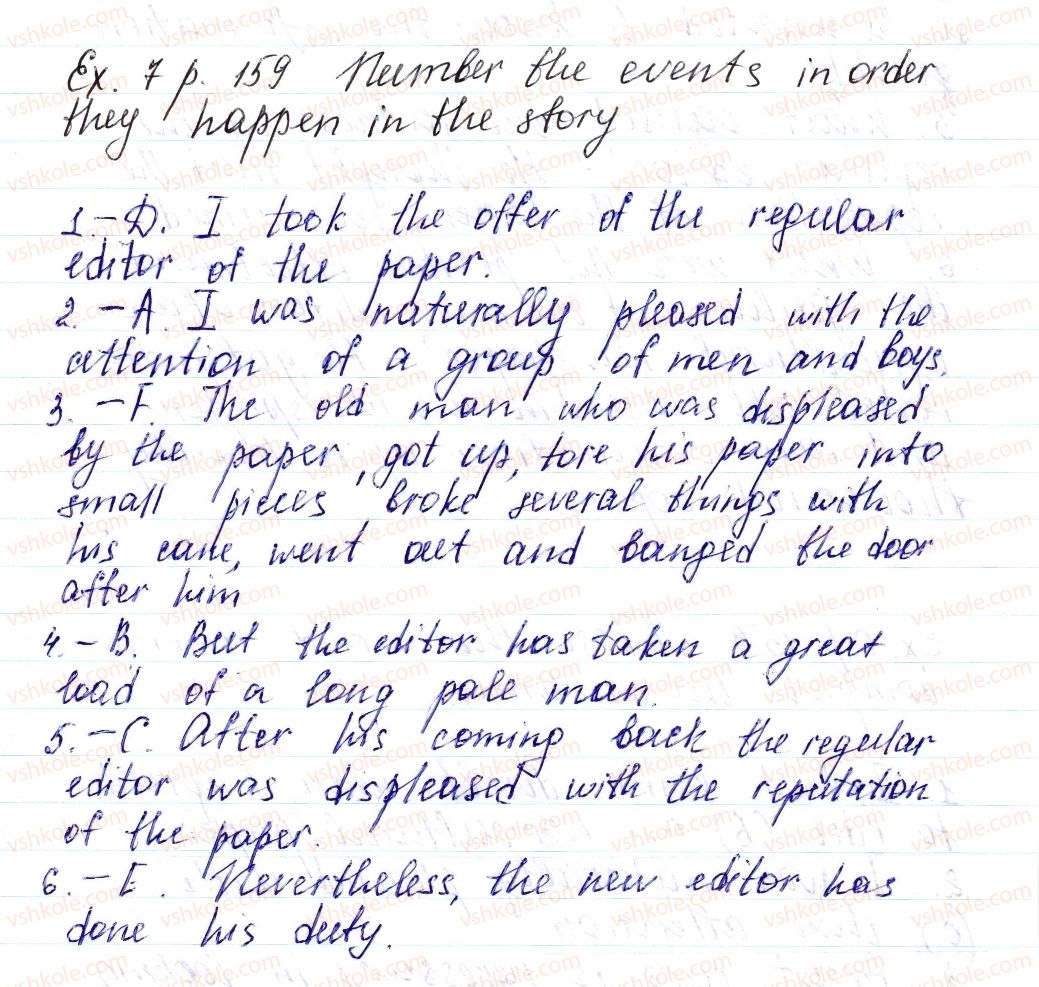 Ex. 7 p. 159 Number the events in order
they happen in the story
1.-D. I took the offer of the regular
editor of the paper.
2. -A. I was naturally pleased with the
attention of a group of men and boys.
3. -F. The old man who was displeased
by the paper, got up, tore his paper into
small pieces broke several things with
his cane, went out and banged the door
after him
4.-B. But the editor has taken a great
load of a long pale man.
5.-C. After his coming back the regular
editor was displeased with the reputation
of the paper.
6.-E. Nevertheless, the new editor has
done his duty.